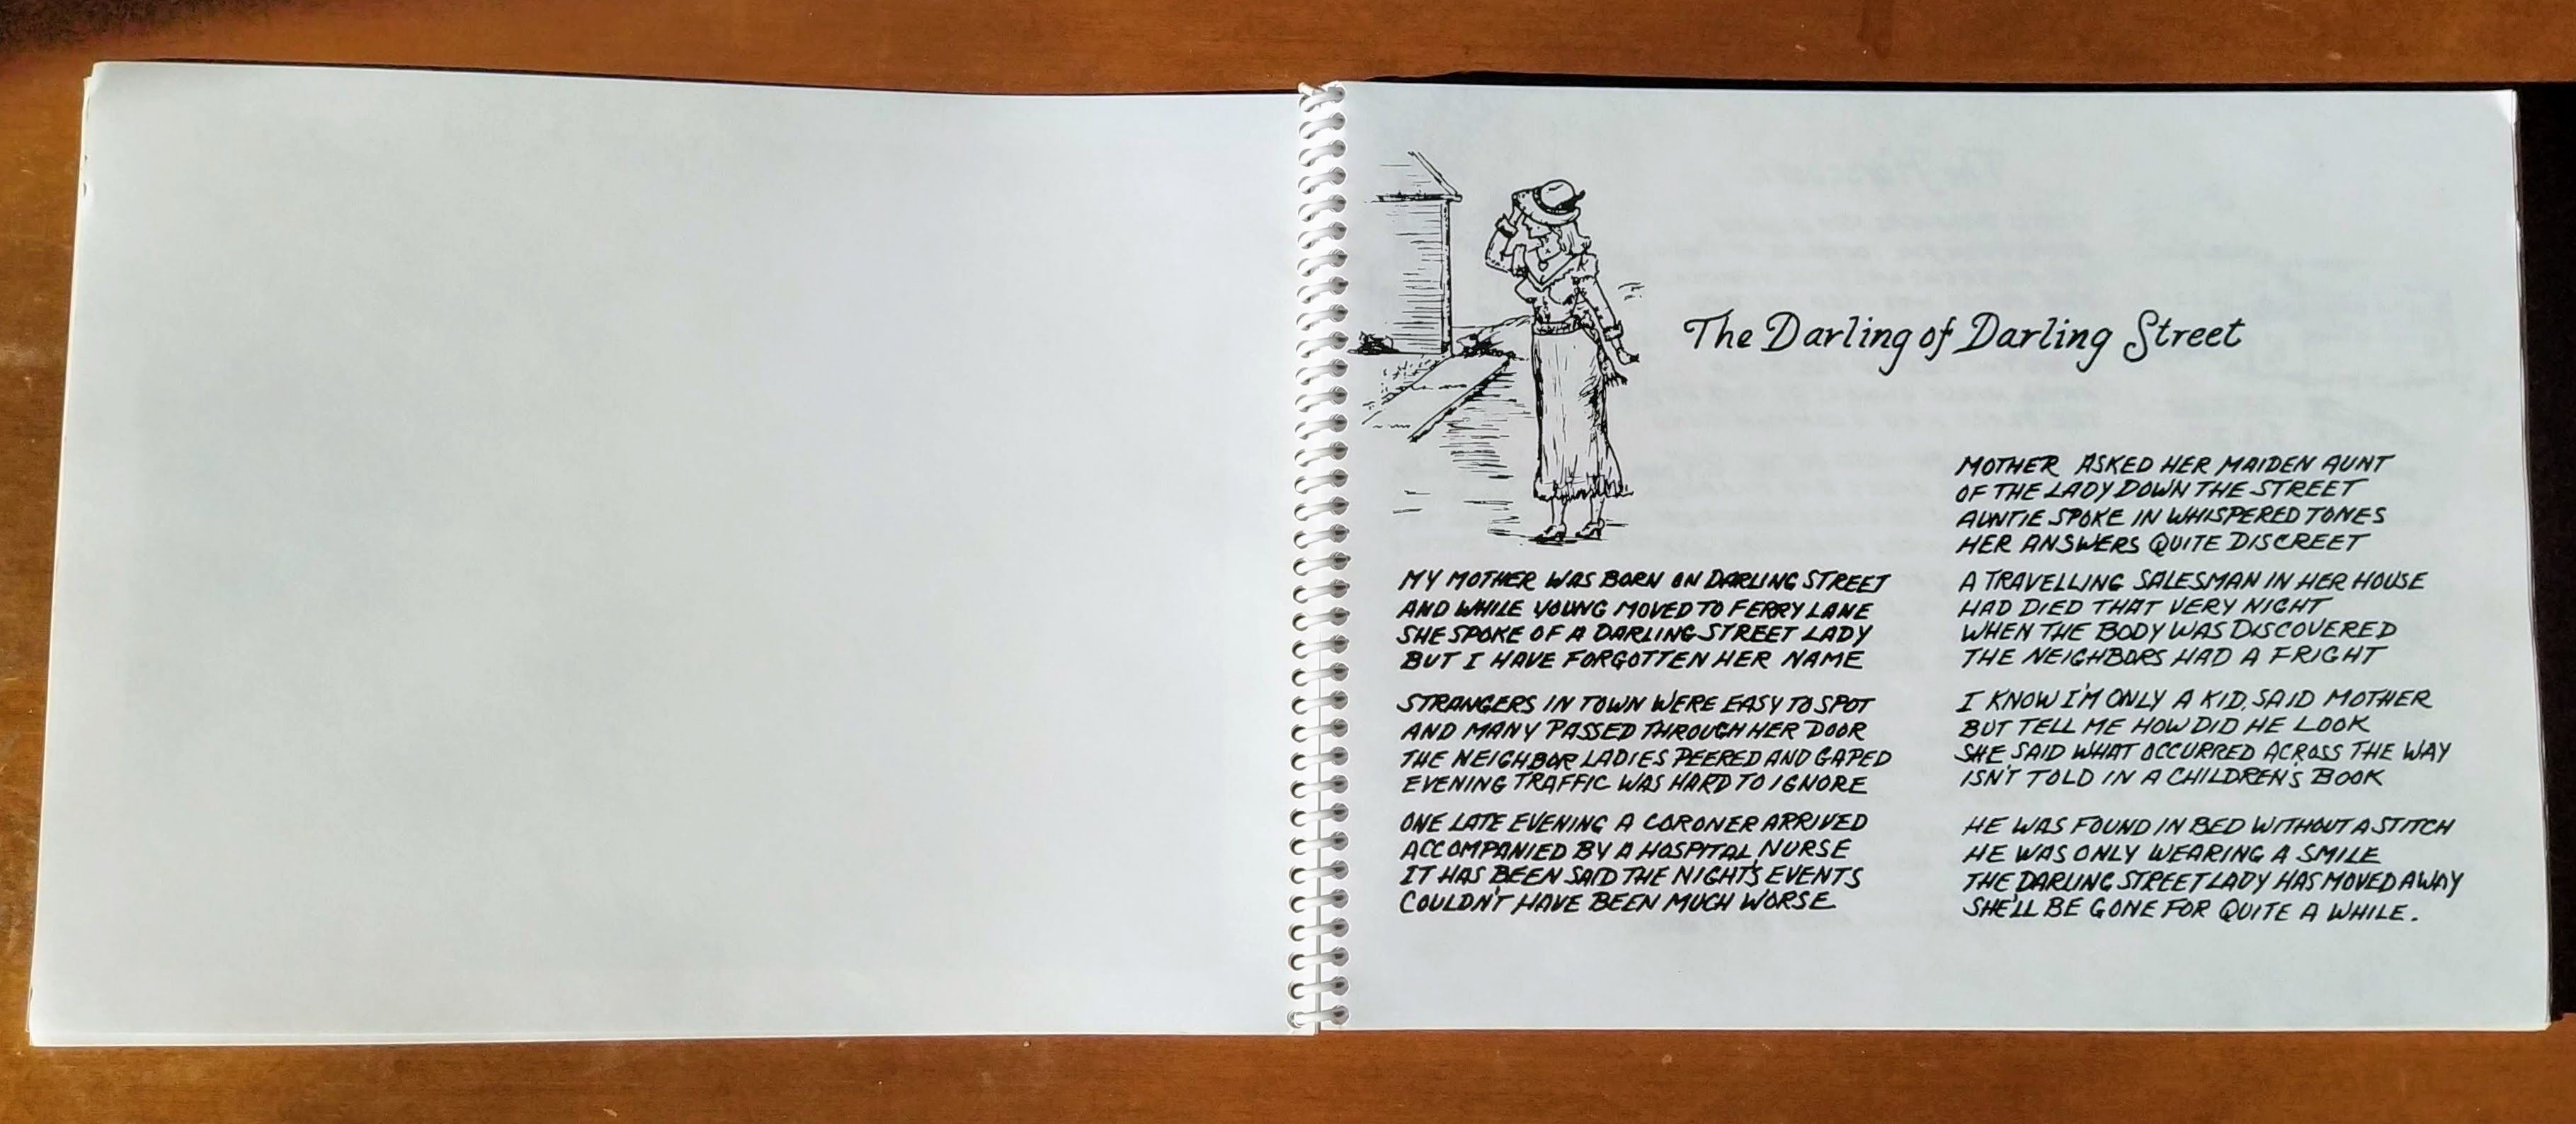 The Darling of Darling Street
MY MOTHER WAS BORN ON DARLING STREET
AND WHILE YOUNG MOVED TO FERRY LANE
SHE SPOKE OF A DARLING STREET LADY
BUT I HAVE FORGOTTEN HER NAME
STRANGERS IN TOWN WERE EASY TO SPOT
AND MANY PASSED THROUGH HER DOOR
THE NEIGHBOR LADIES PEERED AND GAPED
EVENING TRAFFIC WAS HARD TO IGNORE
ONE LATE EVENING A CORONER ARRIVED
ACCOMPANIED BY A HOSPITAL NURSE
IT HAS BEEN SAID THE NIGHT'S EVENTS
COULDN'T HAVE BEEN MUCH WORSE
MOTHER ASKED HER MAIDEN AUNT
OF THE LADY DOWN THE STREET
AUNTIE SPOKE IN WHISPERED TONES
HER ANSWERS QUITE DISCREET
A TRAVELLING SALESMAN IN HER HOUSE
HAD DIED THAT VERY NIGHT
WHEN THE BODY WAS DISCOVERED
THE NEIGHBORS HAD A FRIGHT
I KNOW I'M ONLY A KID, SAID MOTHER
BUT TELL ME HOW DID HE LOOK
SHE SAID WHAT OCCURRED ACROSS THE WAY
ISN'T TOLD IN A CHILDREN'S BOOK
HE WAS FOUND IN BED WITHOUT A STITCH
HE WAS ONLY WEARING A SMILE
THE DARLING STREET LADY HAS MOVED AWAY
SHE'LL BE GONE FOR QUITE A WHILE.